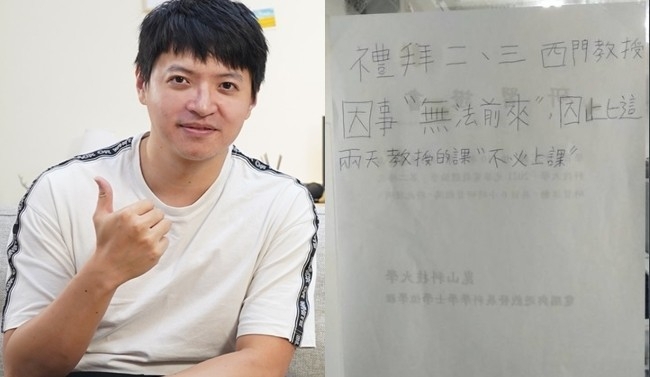 禮拜二、三 西門教授
因事"無法前來",因此這
兩天教授的課"不必上課"
崑山科技大學